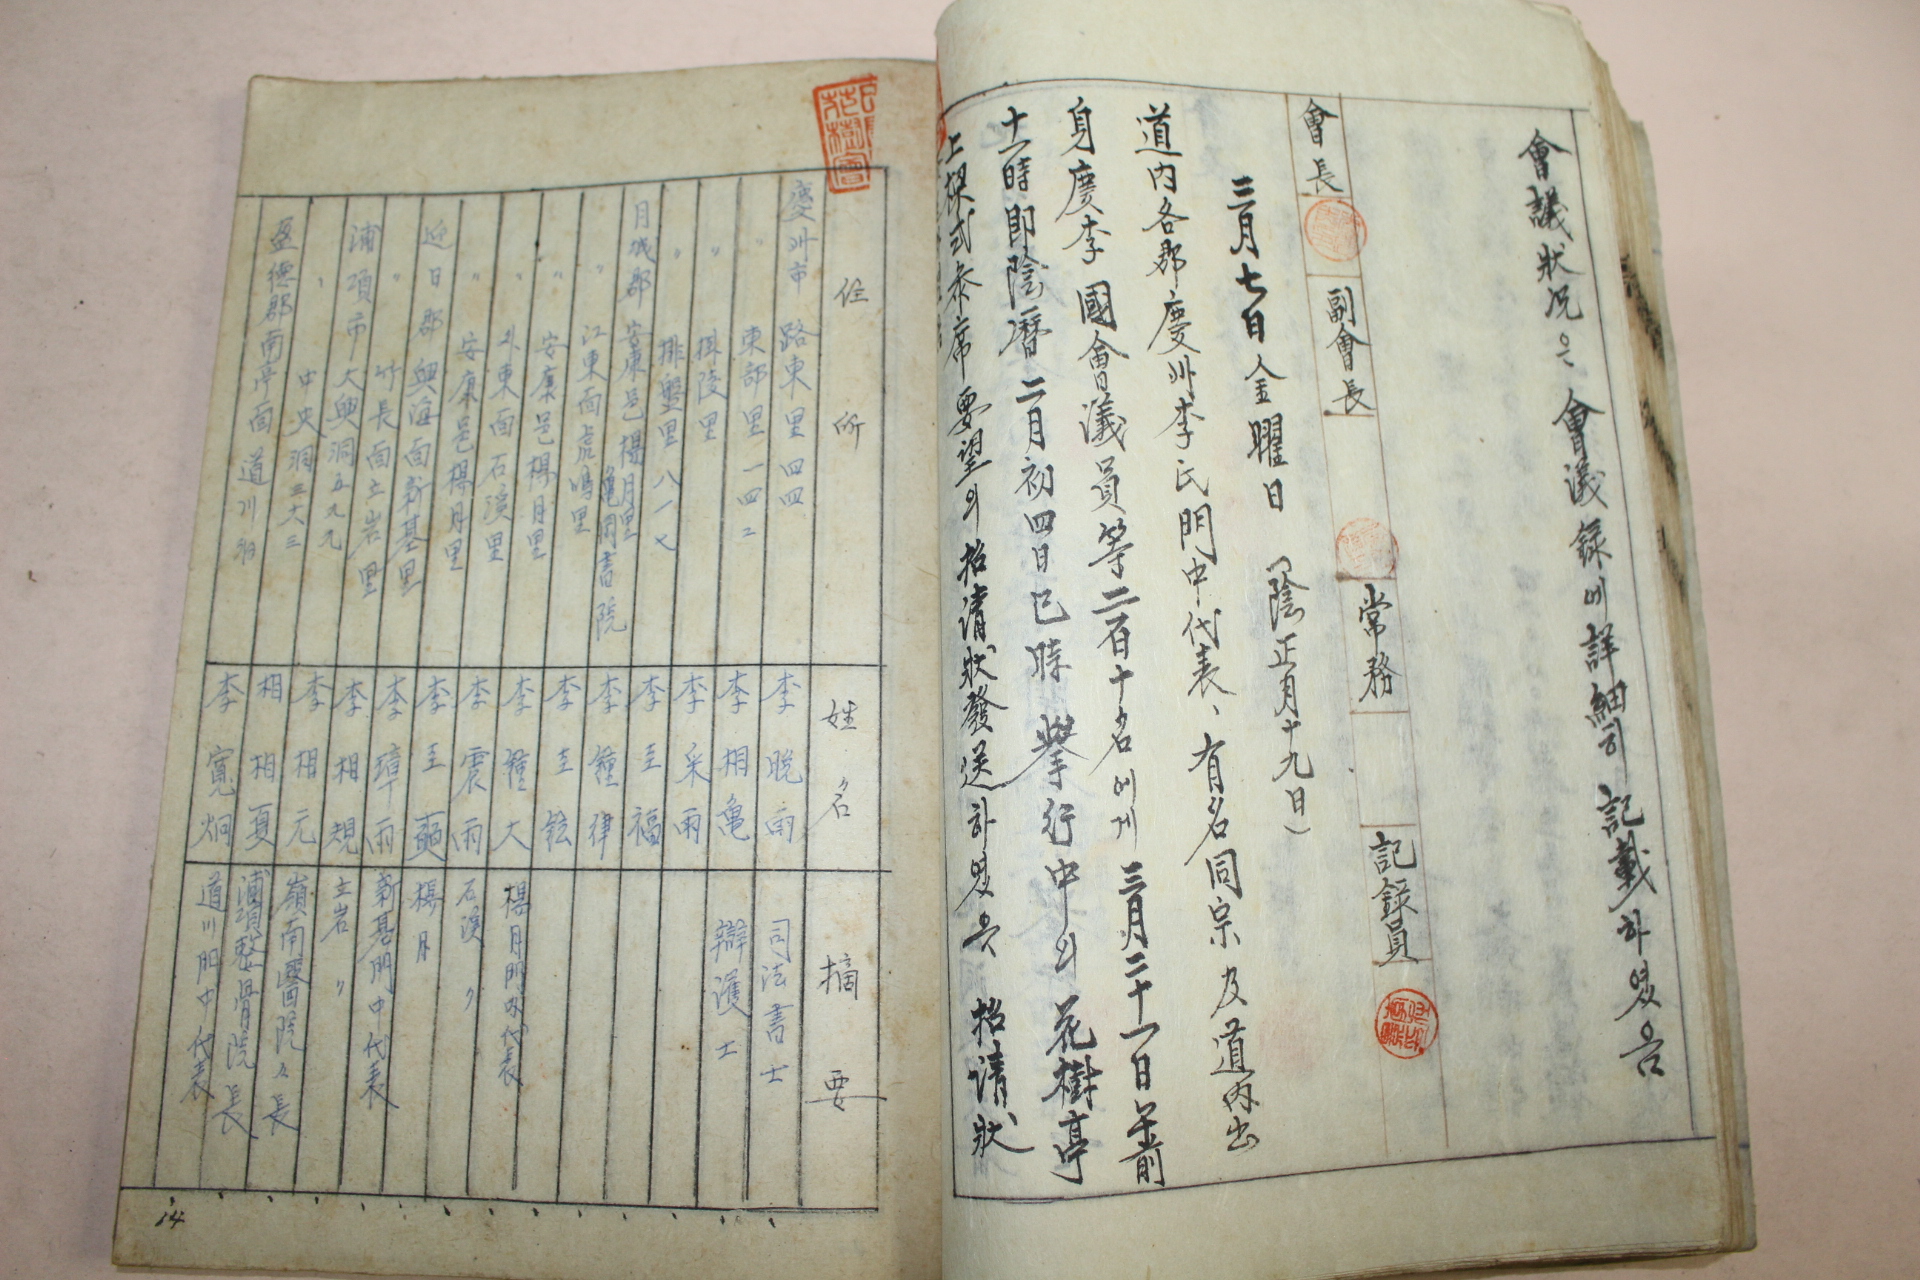 會議狀況은 會議錄에 詳細히 記載하였음
會長 副會長 常務 記錄員
三月七日 金曜日 (陰正月十九日)
道內各郡慶州李氏門中代表、有名同宗 及 道內出
身慶李 國會議員等 二百十名에게 三月二十一日 午前
十一時 即陰曆 二月初四日巳時 擧行中의 花樹亭
上樑式參席 要望의 招請狀發送하였음 招請狀
花樹會
住所 姓名 摘要
慶州市 路東里 四四 李晩雨 司法書士
〃 東部里 一四二 李相龜 辯護士
〃 排陵里 李采雨
〃 排盤里 八一七 李圭福
月城郡 安康邑 楊月里 龜岡書院 李鍾律
〃 江東面 虎鳴里 李圭鉉
〃 安康邑 楊月里 李鍾大 楊月門中代表
〃 外東面 石溪里 李震雨 石溪 〃
〃 安康邑 楊月里 李圭 楊月
迎日郡 興海面 新基里 李璋雨 新基門中代表
〃 竹長面 立岩里 李相規 立岩 〃
浦項市 大興洞 五九九 李相元 嶺南醫院々長
〃 中央洞 三六三 相相夏 浦項整骨院長
盈德郡 南亭面 道川洞 李寬炯 道川門中代表
14